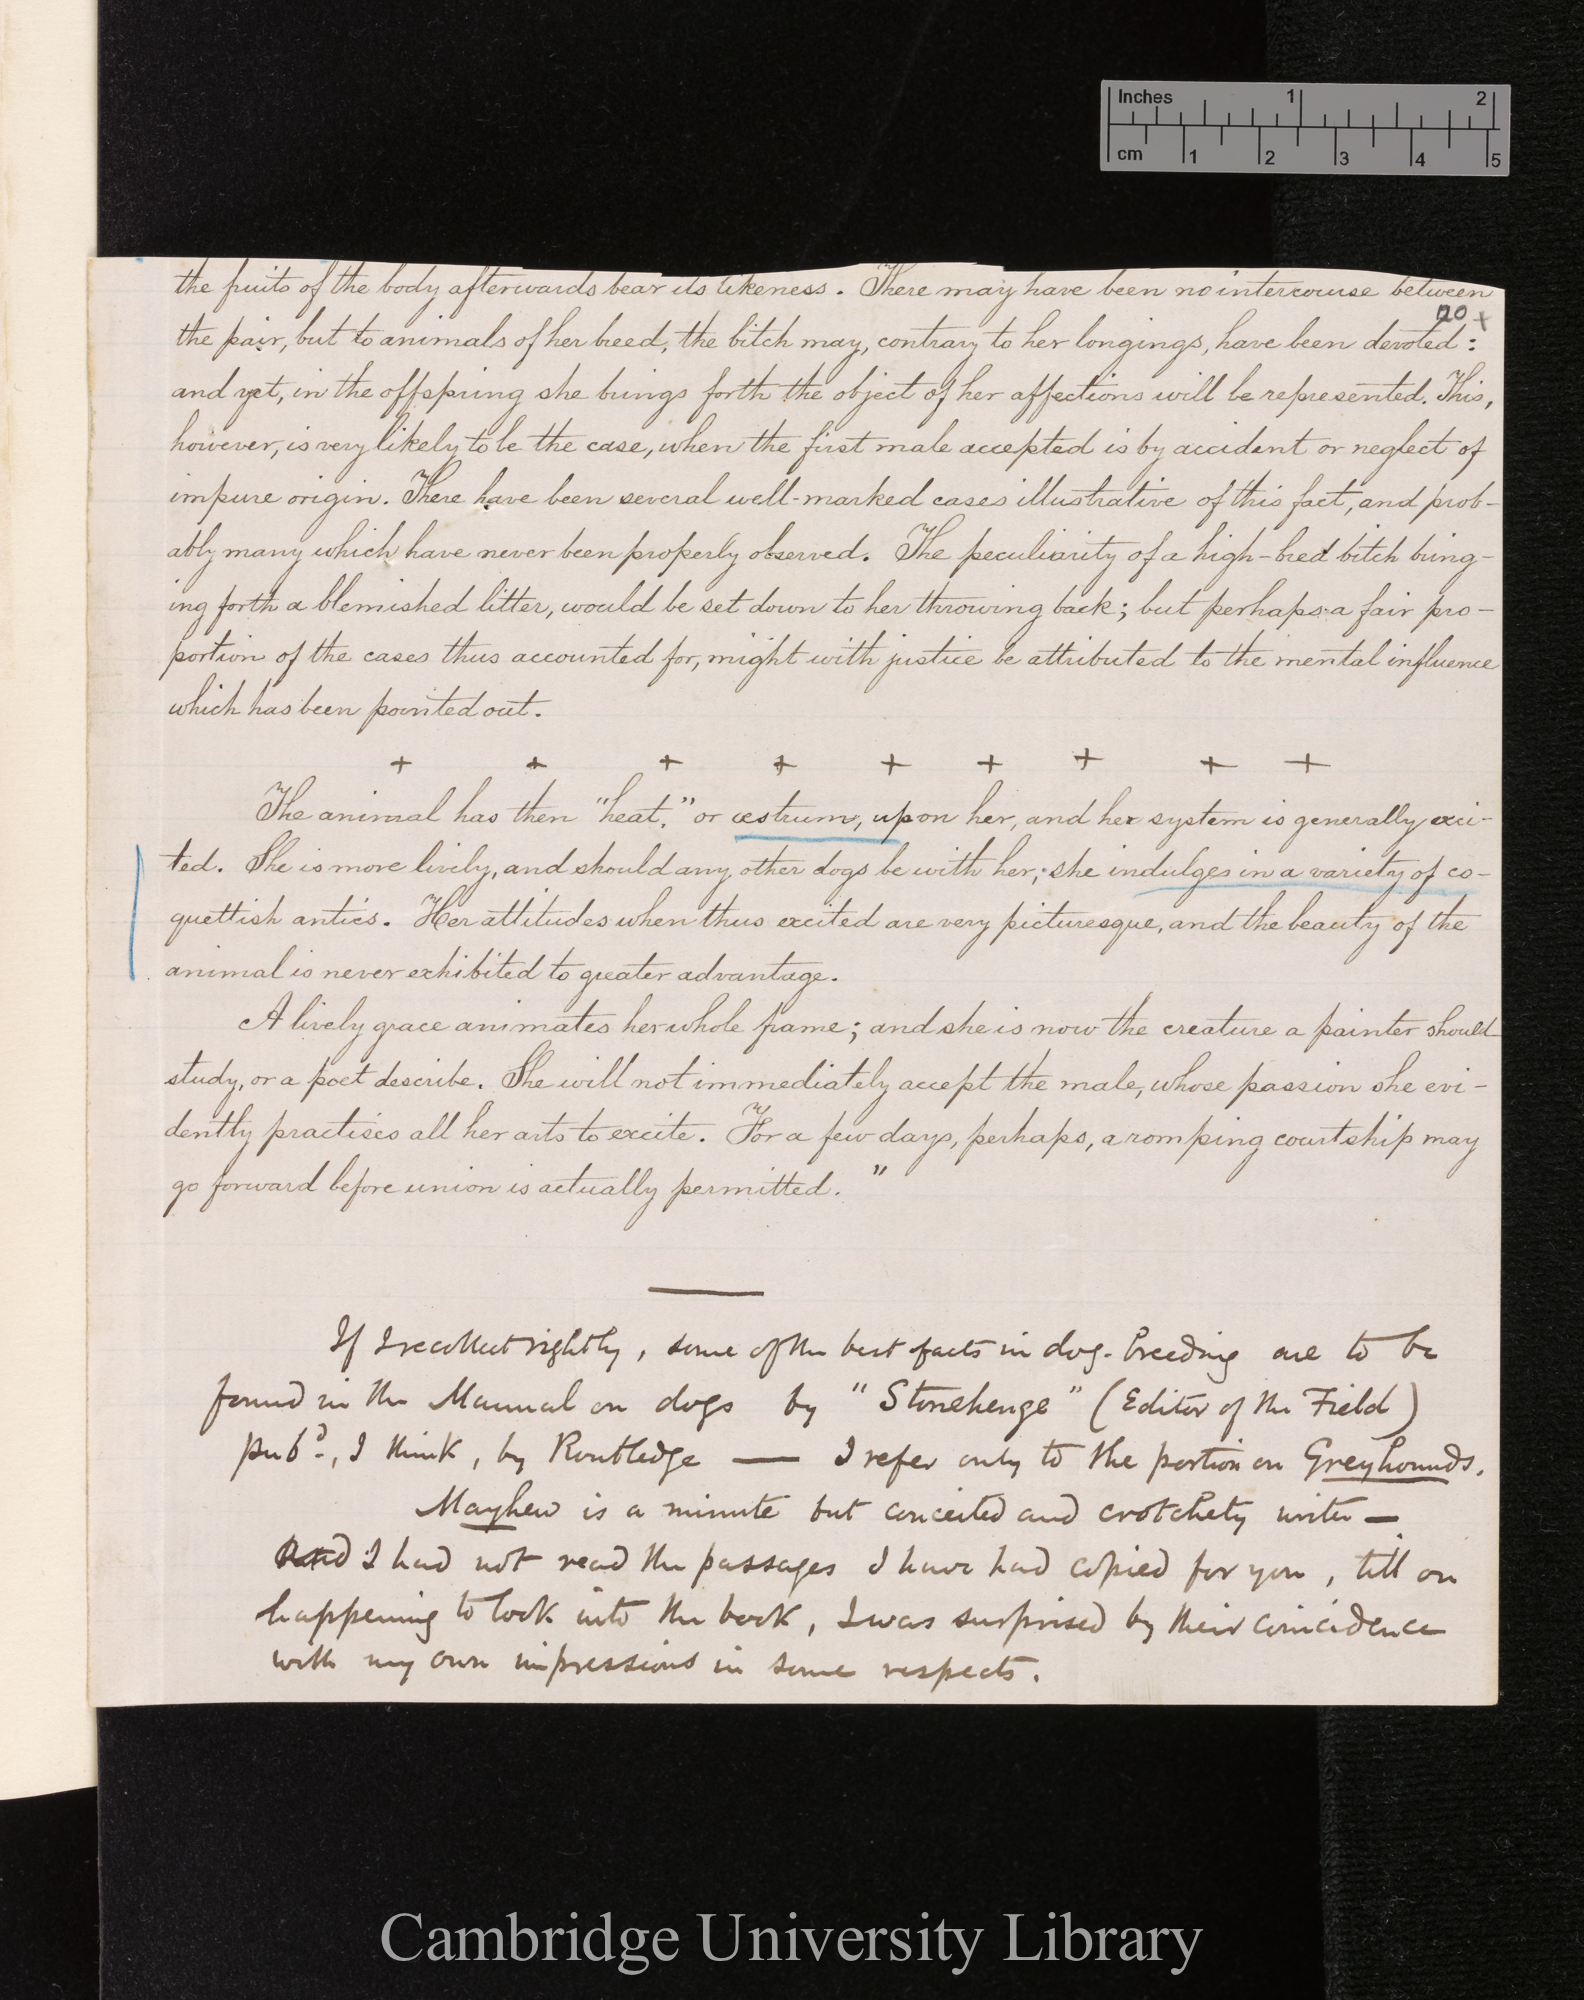 Inches 1 2
cm 1 2 3 4 5
the fruits of the body afterwards bear its likeness. There may have been no intercourse between
20
the pair, but to animals of her breed, the bitch may, contrary to her longings, have been devoted:
and yet, in the offspring she brings forth the object of her affections will be represented. This,
however, is very likely to be the case, when the first male accepted is by accident or neglect of
impure origin. There have been several well-marked cases illustrative of this fact, and prob-
ably many which have never been properly observed. The peculiarity of a high-bred bitch bring-
ing forth a blemished litter, would be set down to her throwing back; but perhaps a fair pro-
portion of the cases thus accounted for, might with justice be attributed to the mental influence
which has been pointed out.
+ + + + + + + + +
The animal has then "heat," or œstrum, upon her, and her system is generally exci-
ted. She is more lively, and should any other dogs be with her, she indulges in a variety of co-
quettish antics. Her attitudes when thus excited are very picturesque, and the beauty of the
animal is never exhibited to greater advantage.
A lively grace animates her whole frame; and she is now the creature a painter should
study, or a poet describe. She will not immediately accept the male, whose passion she evi-
dently practises all her arts to excite. For a few days, perhaps, a romping courtship may
go forward before union is actually permitted."
If I recollect rightly, some of the best facts in dog-breeding are to be
found in the Manual on dogs by "Stonehenge" (Editor of the Field)
pubd., I think, by Routledge — I refer only to the portion on Greyhounds.
Mayhew is a minute but conceited and crotchety writer —
I had not read the passages I have had copied for you, till on
happening to look into the book, I was surprised by their coincidence
with my own impressions in some respects.
Cambridge University Library